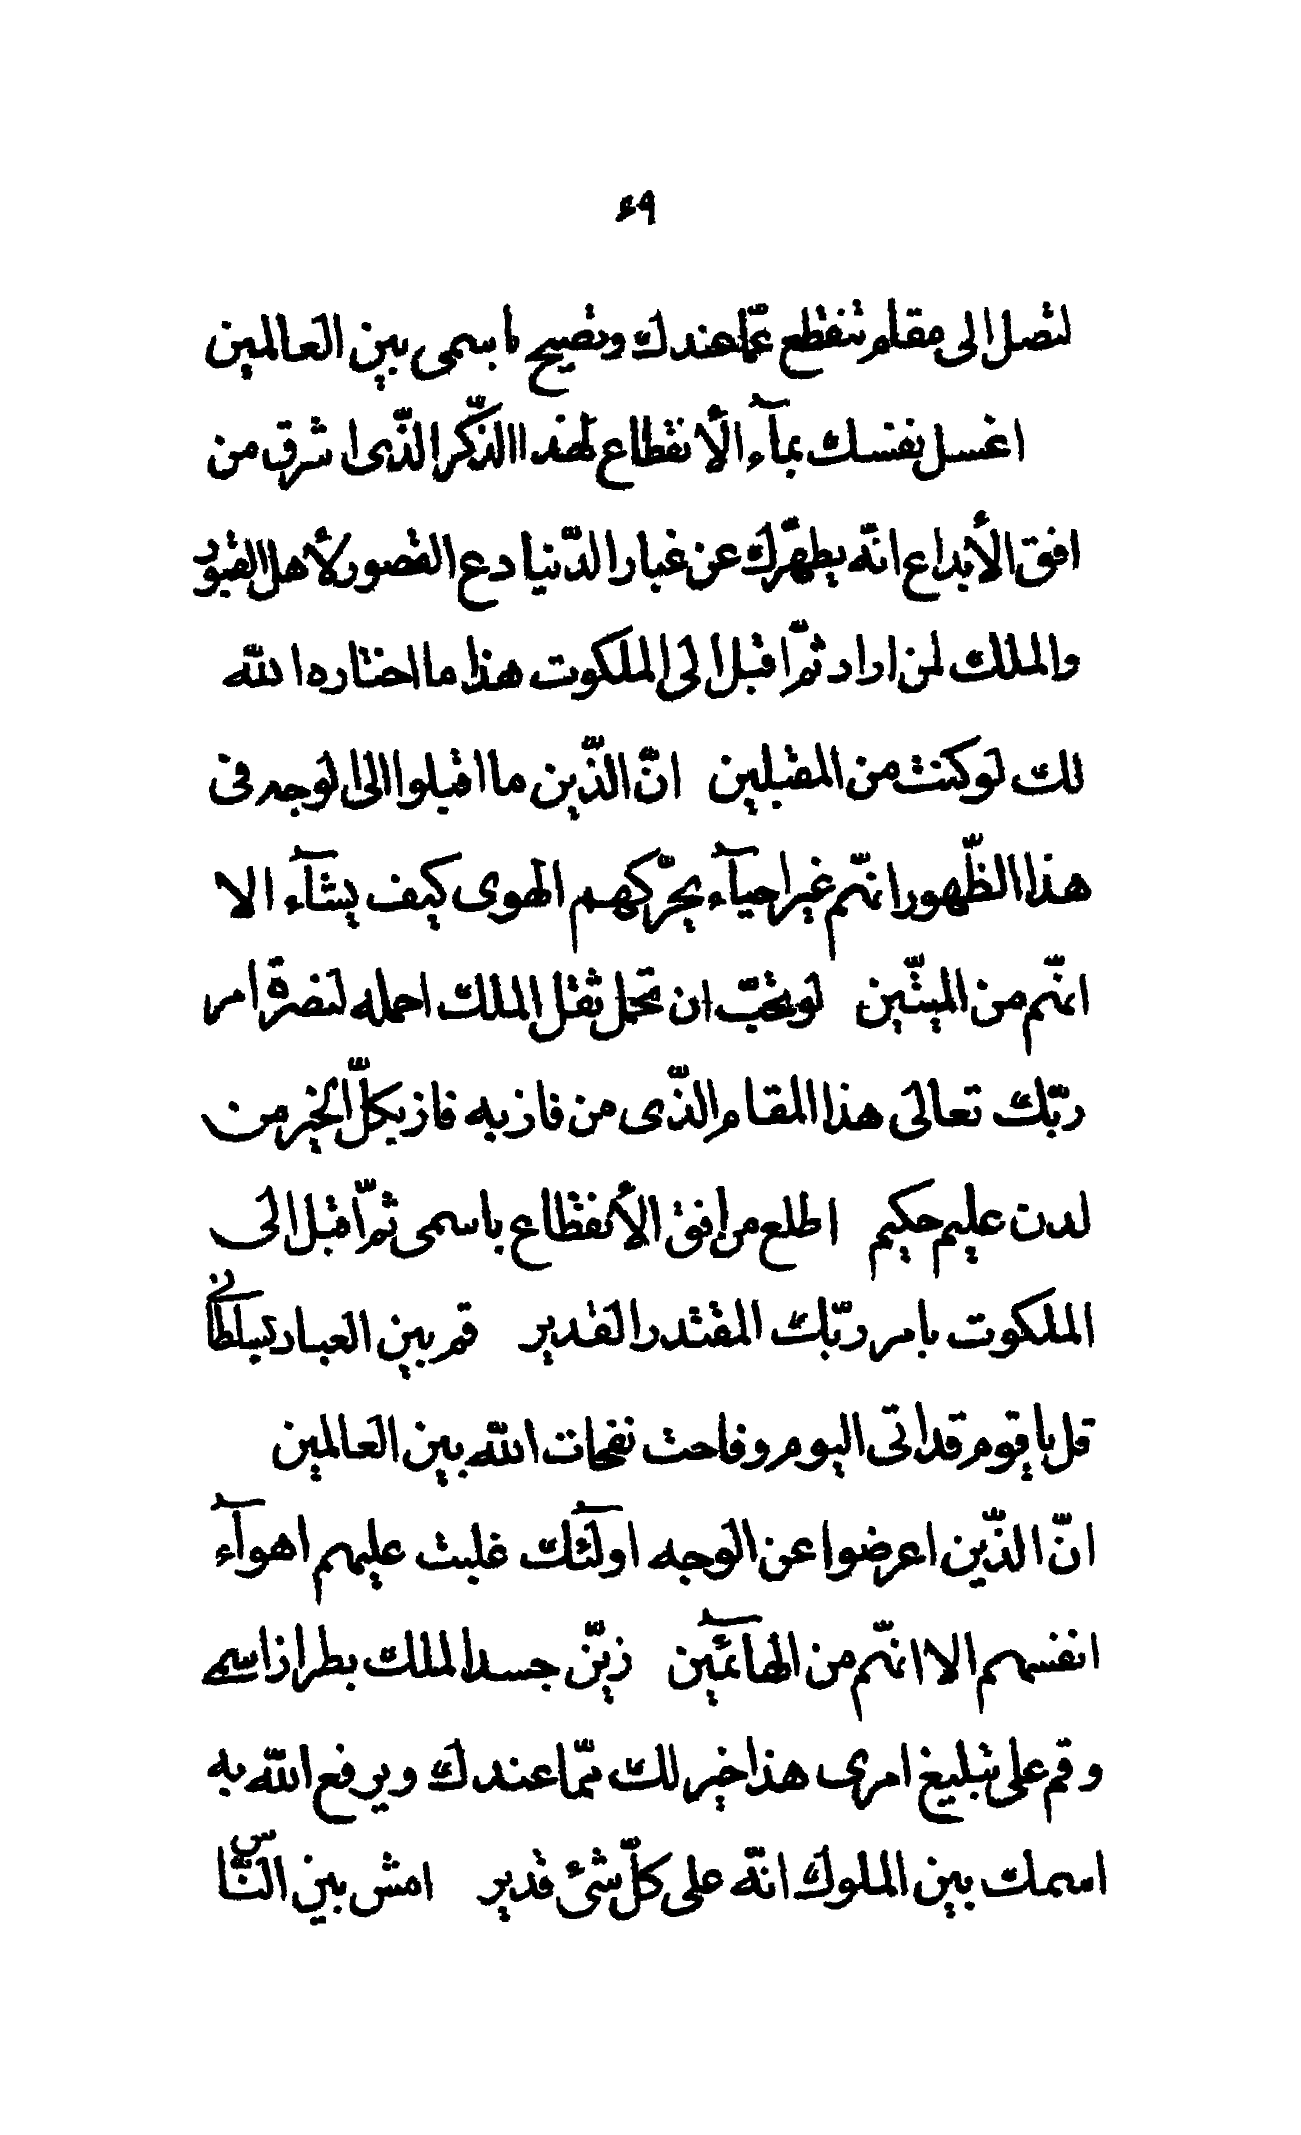 ۶۹
لتصل الی مقام تنقطع عمّا عندك وتصیح باسمی بین العالمین
اغسل نفسك بمآء الأنقطاع لهذا الذّكر الذّی اشرق من
افق الأبداع انّه یطهّرك عن غبار الدّنیا دع القصور لأهل القبور
والملك لمن اراد ثمّ اقبل الی الملكوت هذا ما اختاره الله
لك لو كنت من المقبلین انّ الذّین ما اقبلوا الی الوجه فی
هذا الظّهور انّهم غیر احیآء یحرّكهم الهوی كیف یشآء الا
انّهم من المیّتین لو تحبّ ان تحمل ثقل الملك احمله لنصرة امر
ربّك تعالی هذا المقام الذّی من فاز به فاز بكلّ الخیر من
لدن علیم حكیم اطلع من افق الأنقطاع باسمی ثمّ اقبل الی
الملكوت بامر ربّك المقتدر القدیر قم بین العباد بسلطانی
قل یا قوم قد اتی الیوم وفاحت نفحات الله بین العالمین
انّ الذّین اعرضوا عن الوجه اولئك غلبت علیهم اهوآء
انفسهم الا انّهم من الهآئمین زیّن جسد الملك بطراز اسمی
وقم علی تبلیغ امری هذا خیر لك ممّا عندك ویرفع الله به
اسمك بین الملوك انّه علی كلّ شیء قدیر امش بین النّاس